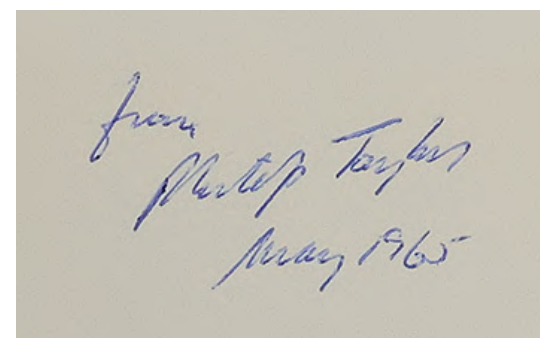 from
Philip Taylor
May 1965